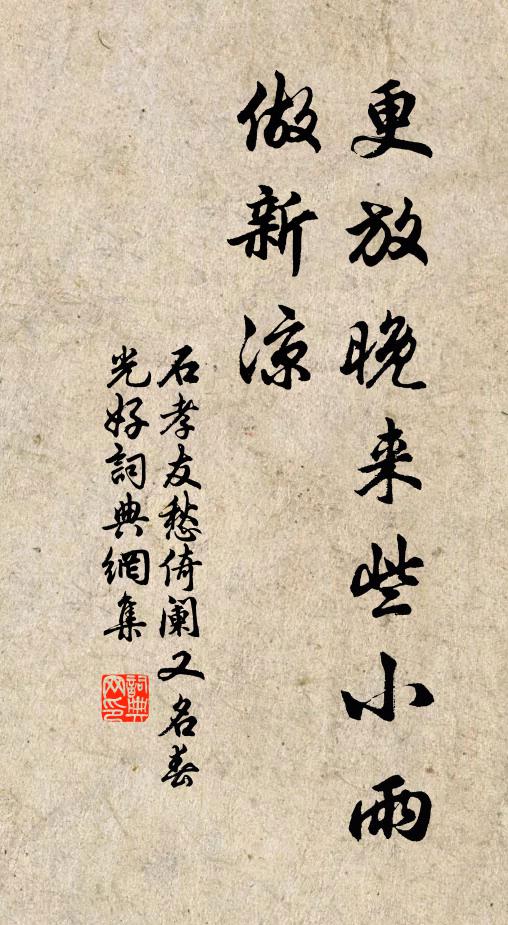 更放晚来些小雨
做新凉
石孝友愁倚阑又名春
光好詞典網集
詞典网印